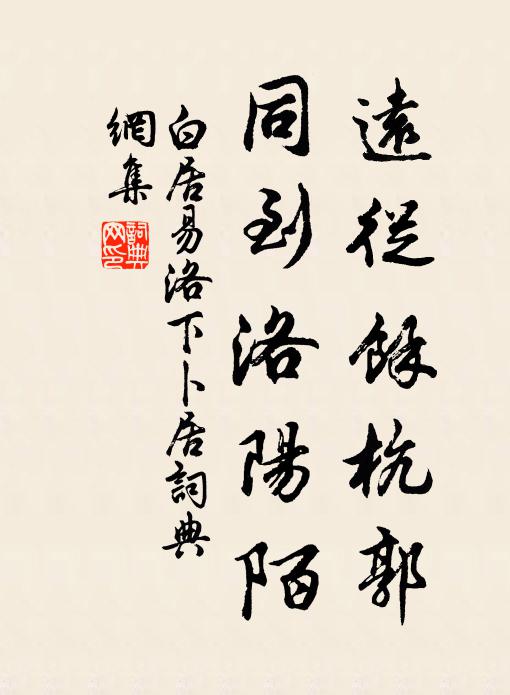 遠從餘杭郭
同到洛陽陌
白居易洛下卜居詞典
網集
詞典
网印